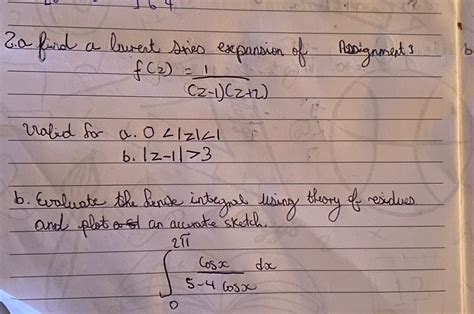 2.a find a laurent series expansion of Assignment 3
f(z) = 1
(z-1)(z+2)
Valid for a. 0 < |z| < 1
b. |z-1| > 3
b. Evaluate the hense integral using theory of residues
and plot an accurate sketch.
2π
∫ cosx dx
5-4 cosx
0